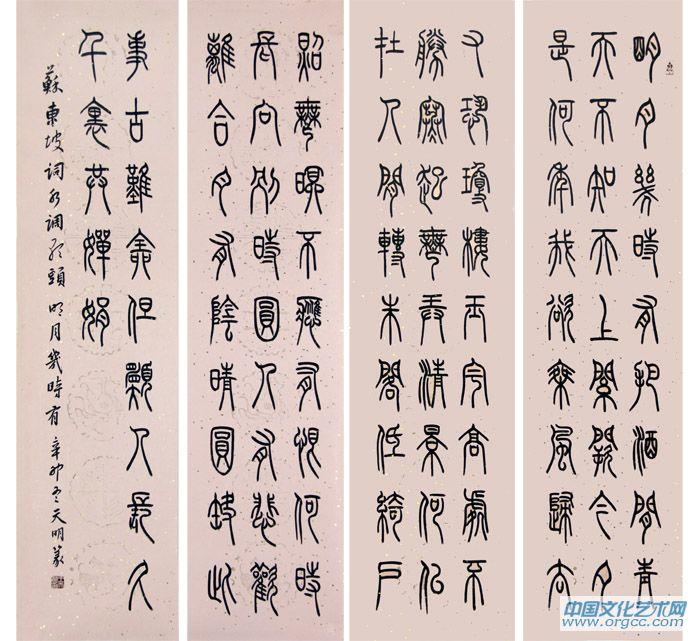 明月幾時有把酒問青
天不知天上宮闕今夕
是何年我欲乘風歸去
又恐瓊樓玉宇高處不
勝寒起舞弄清景何似
在人間轉朱閣低綺戶
照無眠不應有恨何時
長向別時圓人有悲歡
離合月有陰晴圓缺此
事古難全但願人長久
千裏共嬋娟
蘇東坡詞水調歌頭 明月幾時有 辛卯冬天明篆
中国文化艺术网
www.orgcc.com